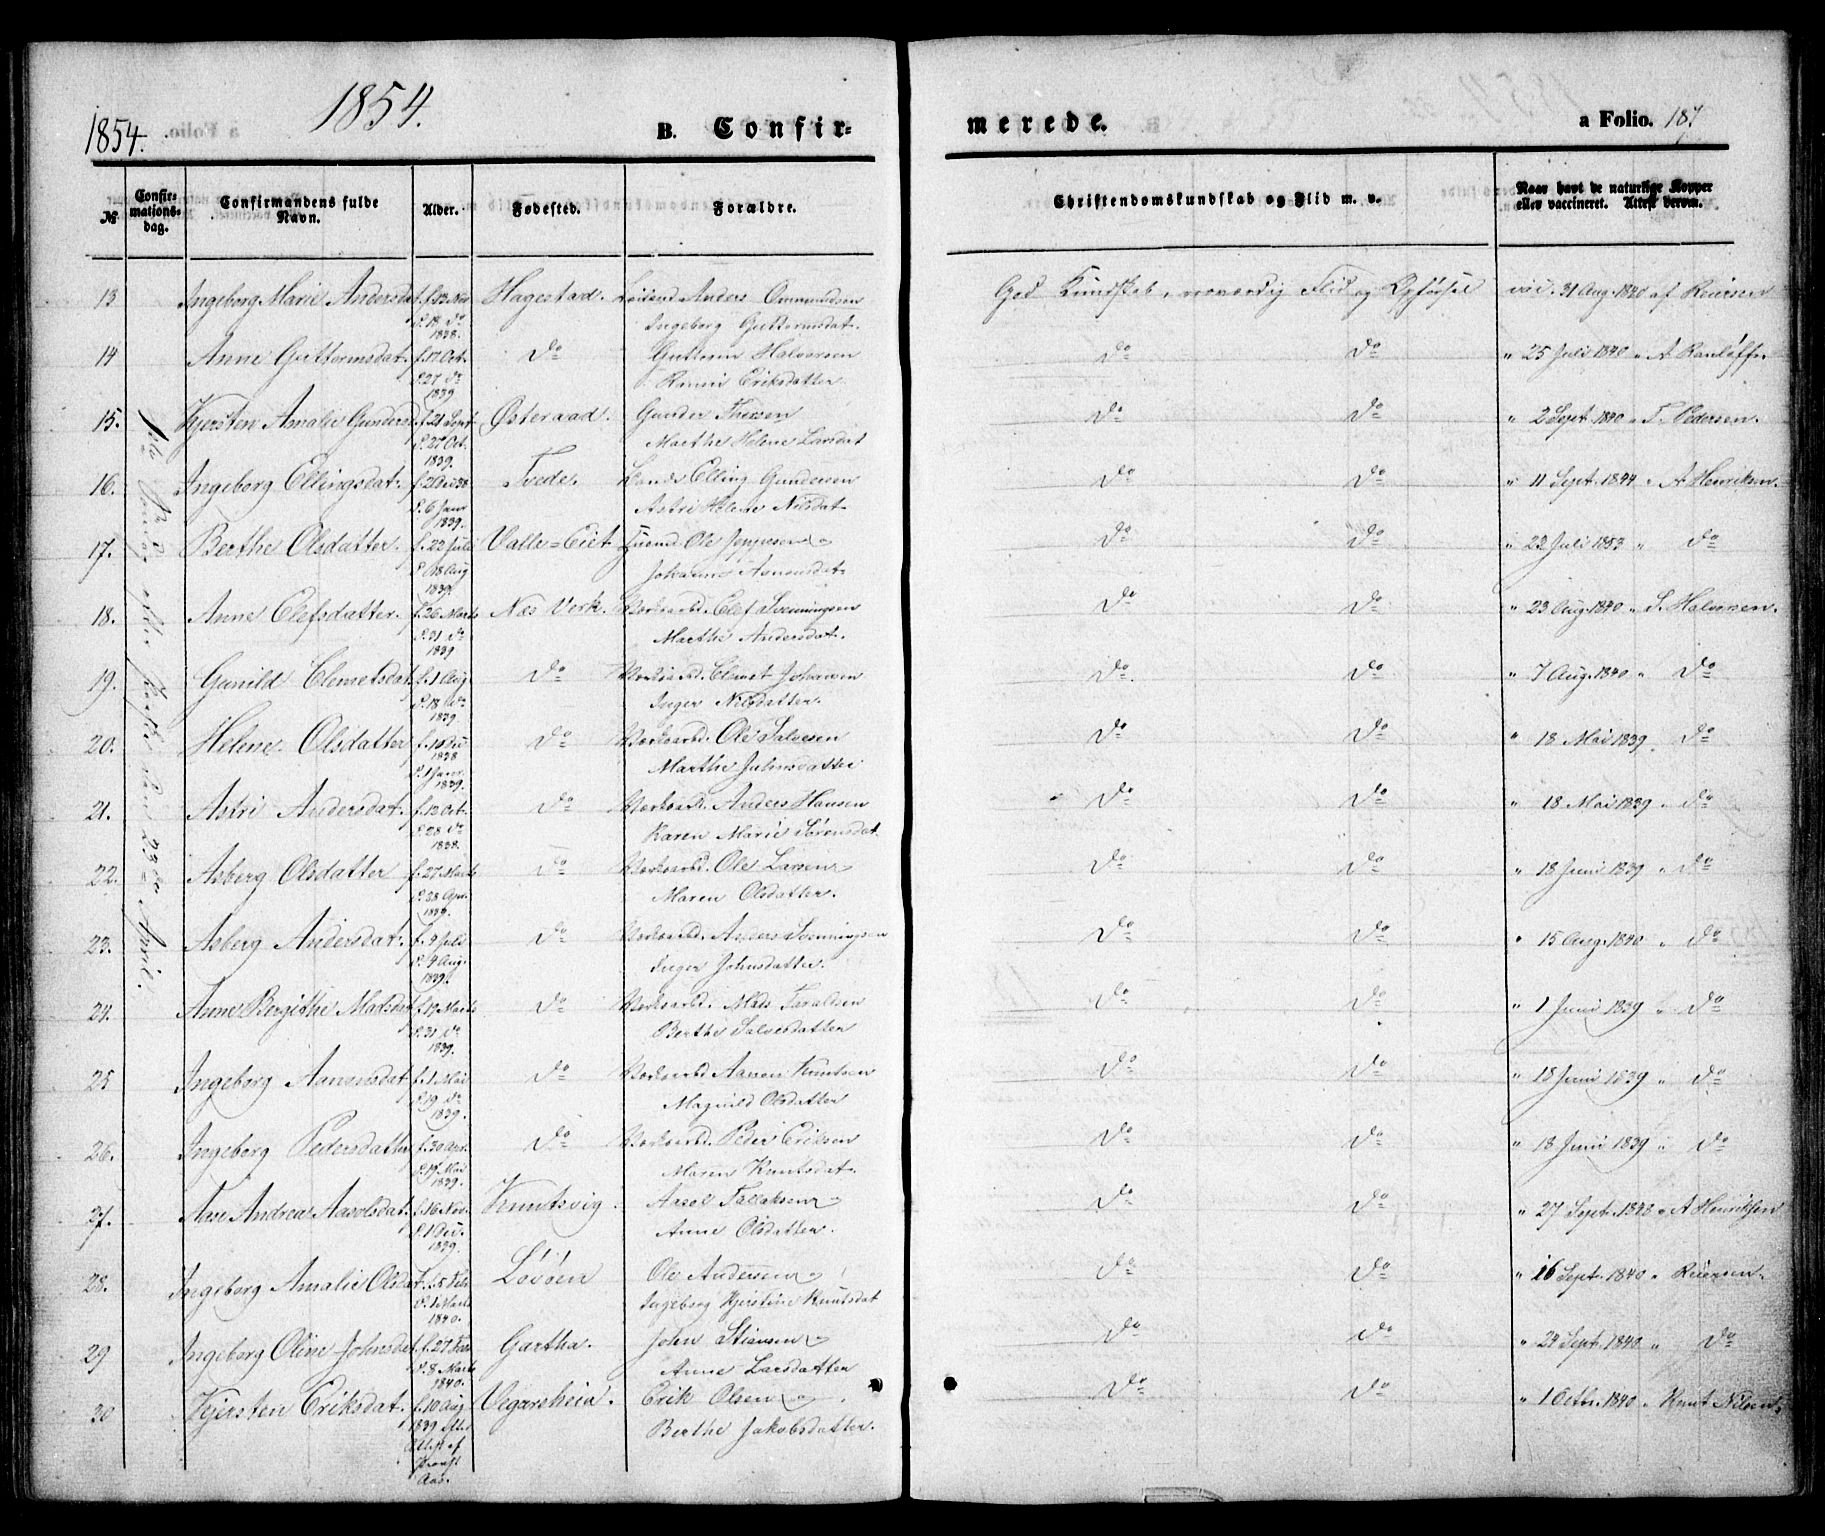 1854.
1854.
B. Confir-
merede.
a Folio. 187
No
Confir-
mations-
dag.
Confirmandens fulde
Navn.
Alder.
Fødested.
Forældre.
Christendomskundskab og Flid m. v.
Naar havt de naturlige Kopper
eller vaccineret. Attest derom.
den 23de April.
13 Ingeborg Marie Andersdat f. 13 Nov Hagestad. Anders Ommundsen God Kundskab, Flid og Opførsel vac. 31 Aug. 1840 af Reiersen
d. 19 do
1838. Ingeborg Guttormsdat.
14 Anne Guttormsdat. f. 17 Oct. do Guttorm Halvorsen do do " 25 Juli 1840 " A
d. 27 do
1839 Eriksdatter.
15. Kjersten Amalie Gundersd f. 21 Sept Østeraad. Gunder do do " 2 Sept 1840 " T. Pedersen.
d. 27 Oct.
1839. Marthe Helene Larsdat
16. Ingeborg Ellingsdat. Tvede. Elling Gundersen do do " 11 Sept. 1844 " A Henriksen.
d. 6 Janr
1839. Astri Helene Nilsdat
17. Berthe Olsdatter. f. 22 Juli Valle=Eiet Ole Jeppesen do do " 22 Juli 1853 " do
d. 18 Aug
1839. Johanne
18. Anne Olefsdatter. f. 26 Marts Næs Verk. Olef Svenningsen do do " 23 Aug. 1840 " S. Halvorsen.
d. 31 do
1839 Marthe Andersdat.
19. Gunild Clemetsdat f. 1 Aug do Clemet Johansen do. do " 7 Aug. 1840 " do
d. 18 do
1839. Inger Nilsdatter.
20. Helene Olsdatter do Ole Salvesen do do " 18 Mai 1839 do
1838
d. 1 Janr.
1839. Marthe Johnsdatter
21. Astri Andersdat. f. 13 Oct. do Anders Hansen do do " 18 Mai 1839 " do
d. 28 do
1838. Karen Marie Sørensdat
22. Asberg Olsdatter f. 27 Marts do Ole Larsen do do " 18 Juni 1839 " do
d. 28 Apr.
1839. Maren Olsdatter.
23. Asberg Andersdat. f. 9 Juli do Anders Svenningsen do do " 15 Aug. 1840 " do
d. 4 Aug.
1839. Inger Johnsdatter.
24. Anne Bergithe Madsdat f. 19 Marts do Mads Taraldsen do do " 1 Juni 1839 " do
d. 31 do
1839. Berthe Salvesdatter
25 Ingeborg Aanonsdat f. 1 Mai do Aanon Knutsen do do " 18 Juni 1839 " do
d. 19 do
1839. Magnild Olsdatter
26. Ingeborg Pedersdatter f. 30 Apr. do Peder Eriksen do do " 18 Juni 1839 " do
d. 19 Mai
1839. Maren Knutsdat.
27. Aase Andrea Aasolsdat. f. 16 Nov. Knutsvig. Aasol Tallaksen do do " 27 Sept. 1840 " A Henriksen
d. 1 Dec.
1839. Anne Olsdatter.
28. Ingeborg Amalie Olsdat f. 5 Feb. Løvøen Ole Andersen do do " 16 Sept. 1840 " Reiersen.
d. 1 Marts
1840. Ingeborg Kjerstine Knutsdat
29 Ingeborg Oline Johnsdat f. 27 Jan Gartha. John Stiansen do do " 24 Sept. 1840 " do
d. 8 Marts
1840. Anne Larsdatter
30 Kjersten Eriksdat. f. 10 Aug Vegarsheia. Erik Olsen do do " 1 Octbr. 1840 " Knut Nilsen.
1839 efter
Attest af
Provst
Aas. Berthe Jakobsdatter.